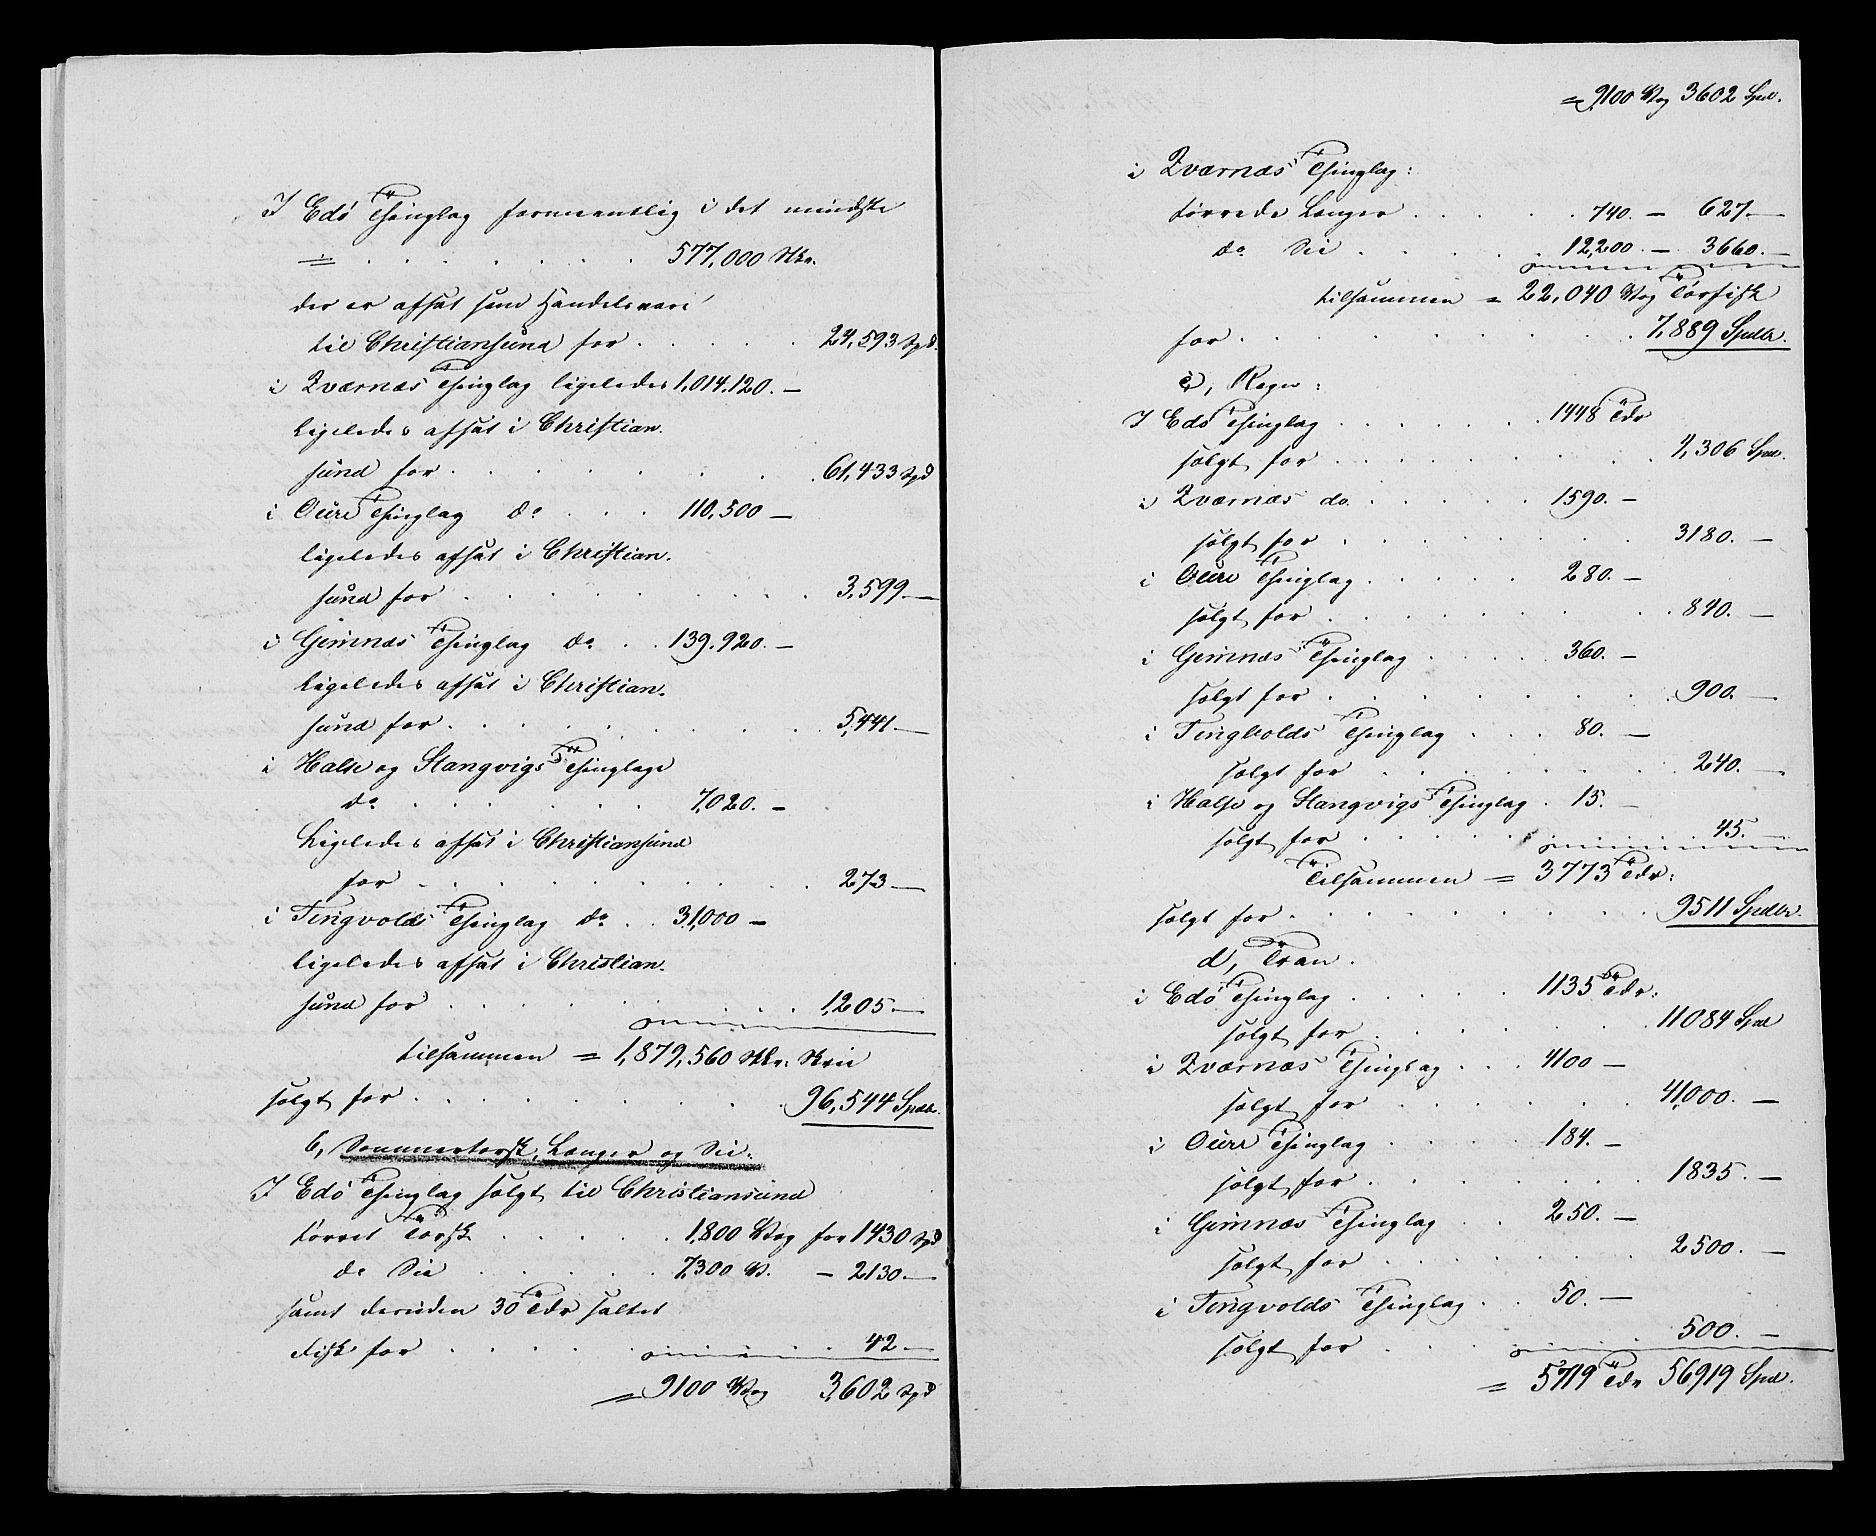 I Edö Thinglag formeentlig i det mindste
= . . . . . . . 577,000 Stkr.
der er afsat som Handelsvare
til Christiansund for . . . . . 24,593 Spd.
i Qværnæs Thinglag ligeledes 1,014,120. —
ligeledes afsat i Christian-
sund for . . . . . . . 61,433 Spd
i Oure Thinglag do . . . 110,500 —
ligeledes afsat i Christian-
sund for . . . . . . . . 3,599. —
i Gimnæs Thinglag do . . 139,920. —
ligeledes afsat i Christian-
sund for . . . . . . . . 5,441 —
i Halse og Stangvigs Thinglage
do . . . . . . 7,020. —
Ligeledes afsat i Christiansund
for . . . . . . . . . 273 —
i Tingvold Thinglag do . . 31,000 —
ligeledes afsat i Christian-
sund for . . . . . . . . 1,205. —
tilsammen = 1,879,560 Stkr: Skrei
solgt for . . . . . . . . 96,544 Spdlr.
b, Sommertorsk, Længer og Sei.
I Edö Thinglag solgt til Christiansund
törret Törsk . . . . . 1,800 Vog for 1430 Spd
do Sei . . . . . 7,300 V. — 2130. —
samt desuden 30 Tdr saltet
Fisk for . . . . . . . 42 —
= 9100 Vog 3,602 Spd
= 9100 Vog 3602 Spd.
i Qværnæs Thinglag:
törrede Længer . . . . . 740. — 627. —
do Sei . . . . . 12,200. — 3660. —
tilsammen = 22,040 Vog Törfisk
for . . . . . . . . . 7,889 Spdlr.
c, Rogn:
I Edö Thinglag . . . . . . 1448 Tdr
solgt for . . . . . . . . 4,306 Spd.
i Qværnæs do. . . . . . 1590. —
solgt for . . . . . . . . 3180. —
i Oure Thinglag . . . . . 280. —
solgt for . . . . . . . . 840. —
i Gimnæs Thinglag . . . . 360. —
solgt for . . . . . . . . 900. —
i Tingvolds Thinglag . . . 80. —
solgt for . . . . . . . 240. —
i Halse og Stangvigs Thinglag . 15. —
solgt for . . . . . . . 45. —
Tilsammen = 3773 Tdr:
solgt for . . . . . . . . 9511 Spdlr.
d, Tran.
i Edö Thinglag . . . . . 1135 Tdr:
solgt for . . . . . . . 11084 Spd
i Qværnæs Thinglag . . . 4100 —
solgt for . . . . . . . 41,000. —
i Oure Thinglag . . . . 184. —
solgt for . . . . . . . 1835. —
i Gimnæs Thinglag . . 250. —
solgt for . . . . . . . 2500. —
i Tingvolds Thinglag . . 50. —
solgt for . . . . . . . 500. —
= 5719 Tdr 56919 Spd.